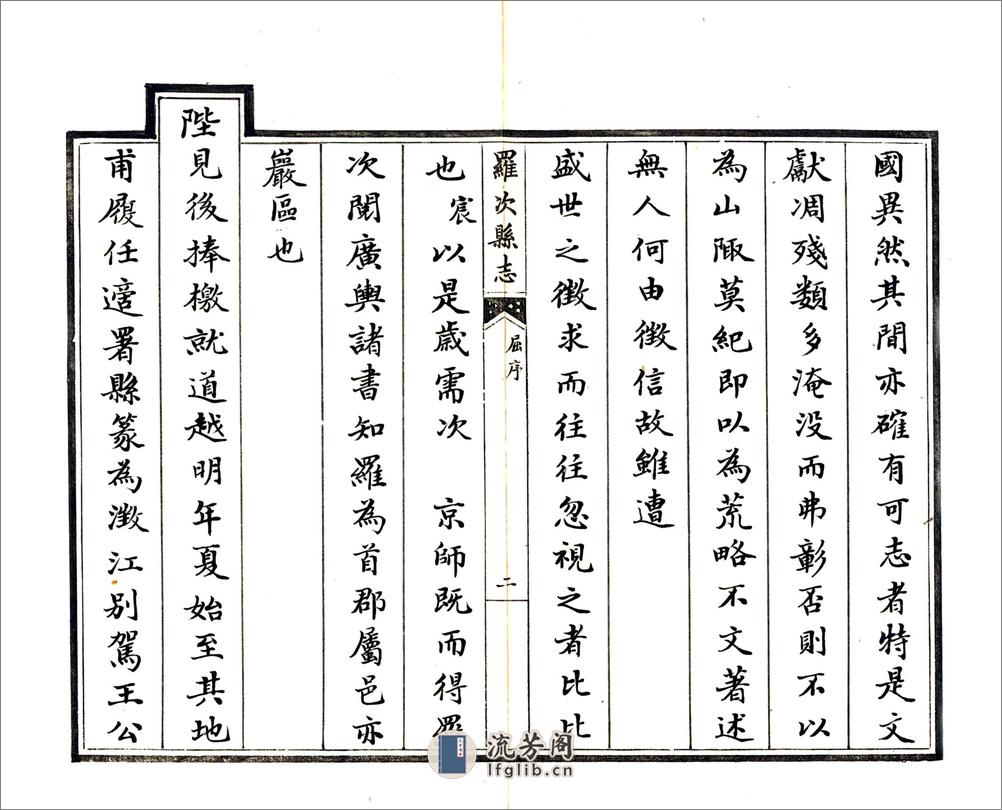 國異然其間亦確有可志者特是文
獻凋殘類多淹没而弗彰否則不以
為山陬莫紀即以為荒略不文著述
無人何由徵信故雖遭
盛世之徵求而往往忽視之者比比
羅次縣志
屈序
二
也宸以是歲需次　京師既而得羅
次閱廣輿諸書知羅為首郡屬邑亦
巖區也
陛見後捧檄就道越明年夏始至其地
甫履任適署縣篆為澂江別駕王公
流芳阁
lfglib.cn